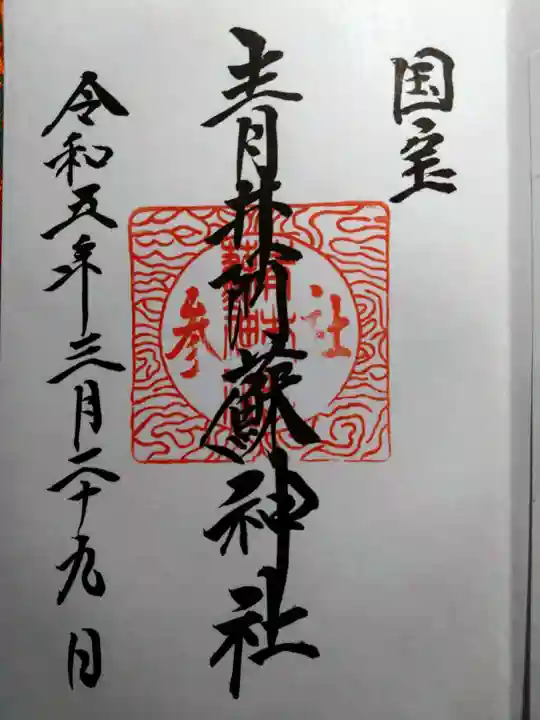 国宝
青井阿蘇神社
社参
令和五年三月二十九日